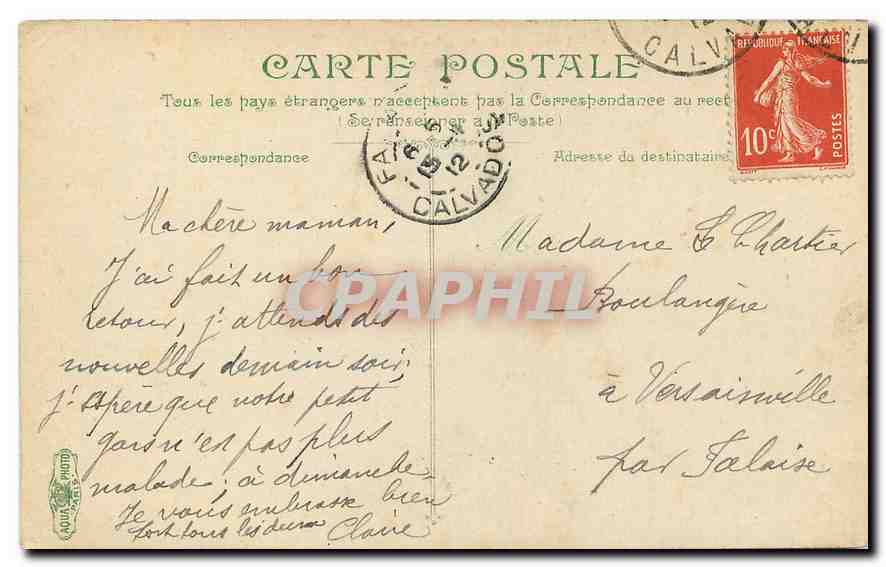 CARTE POSTALE
Tous les pays étrangers n'acceptent pas la Correspondance au rect
(Se renseigner à la Poste)
Correspondance
Adresse du destinataire
REPUBLIQUE FRANÇAISE
10c
POSTES
CALVA
CALVADOS
12
Ma chère maman,
J'ai fait un bon
retour, j'attends des
nouvelles demain soir,
j'espère que notre petit
gars n'est pas plus
malade; à dimanche
Je vous embrasse bien
fort tous les deux
Claire
Madame E Chartier
Boulangère
à Versainville
par Falaise
AQUA PHOTO
PARIS
CPAPHIL